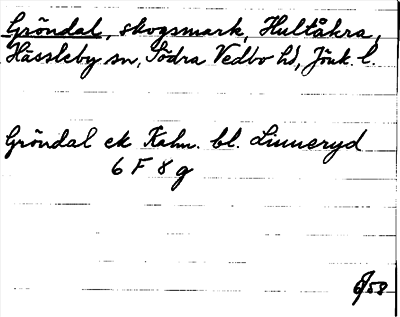 Gröndal, skogsmark, Hultåkra,
Hässleby sn, Södra Vedbo hd, Jönk. l.
Gröndal ek Kahn. bl. Linneryd
6 F 8 g
58